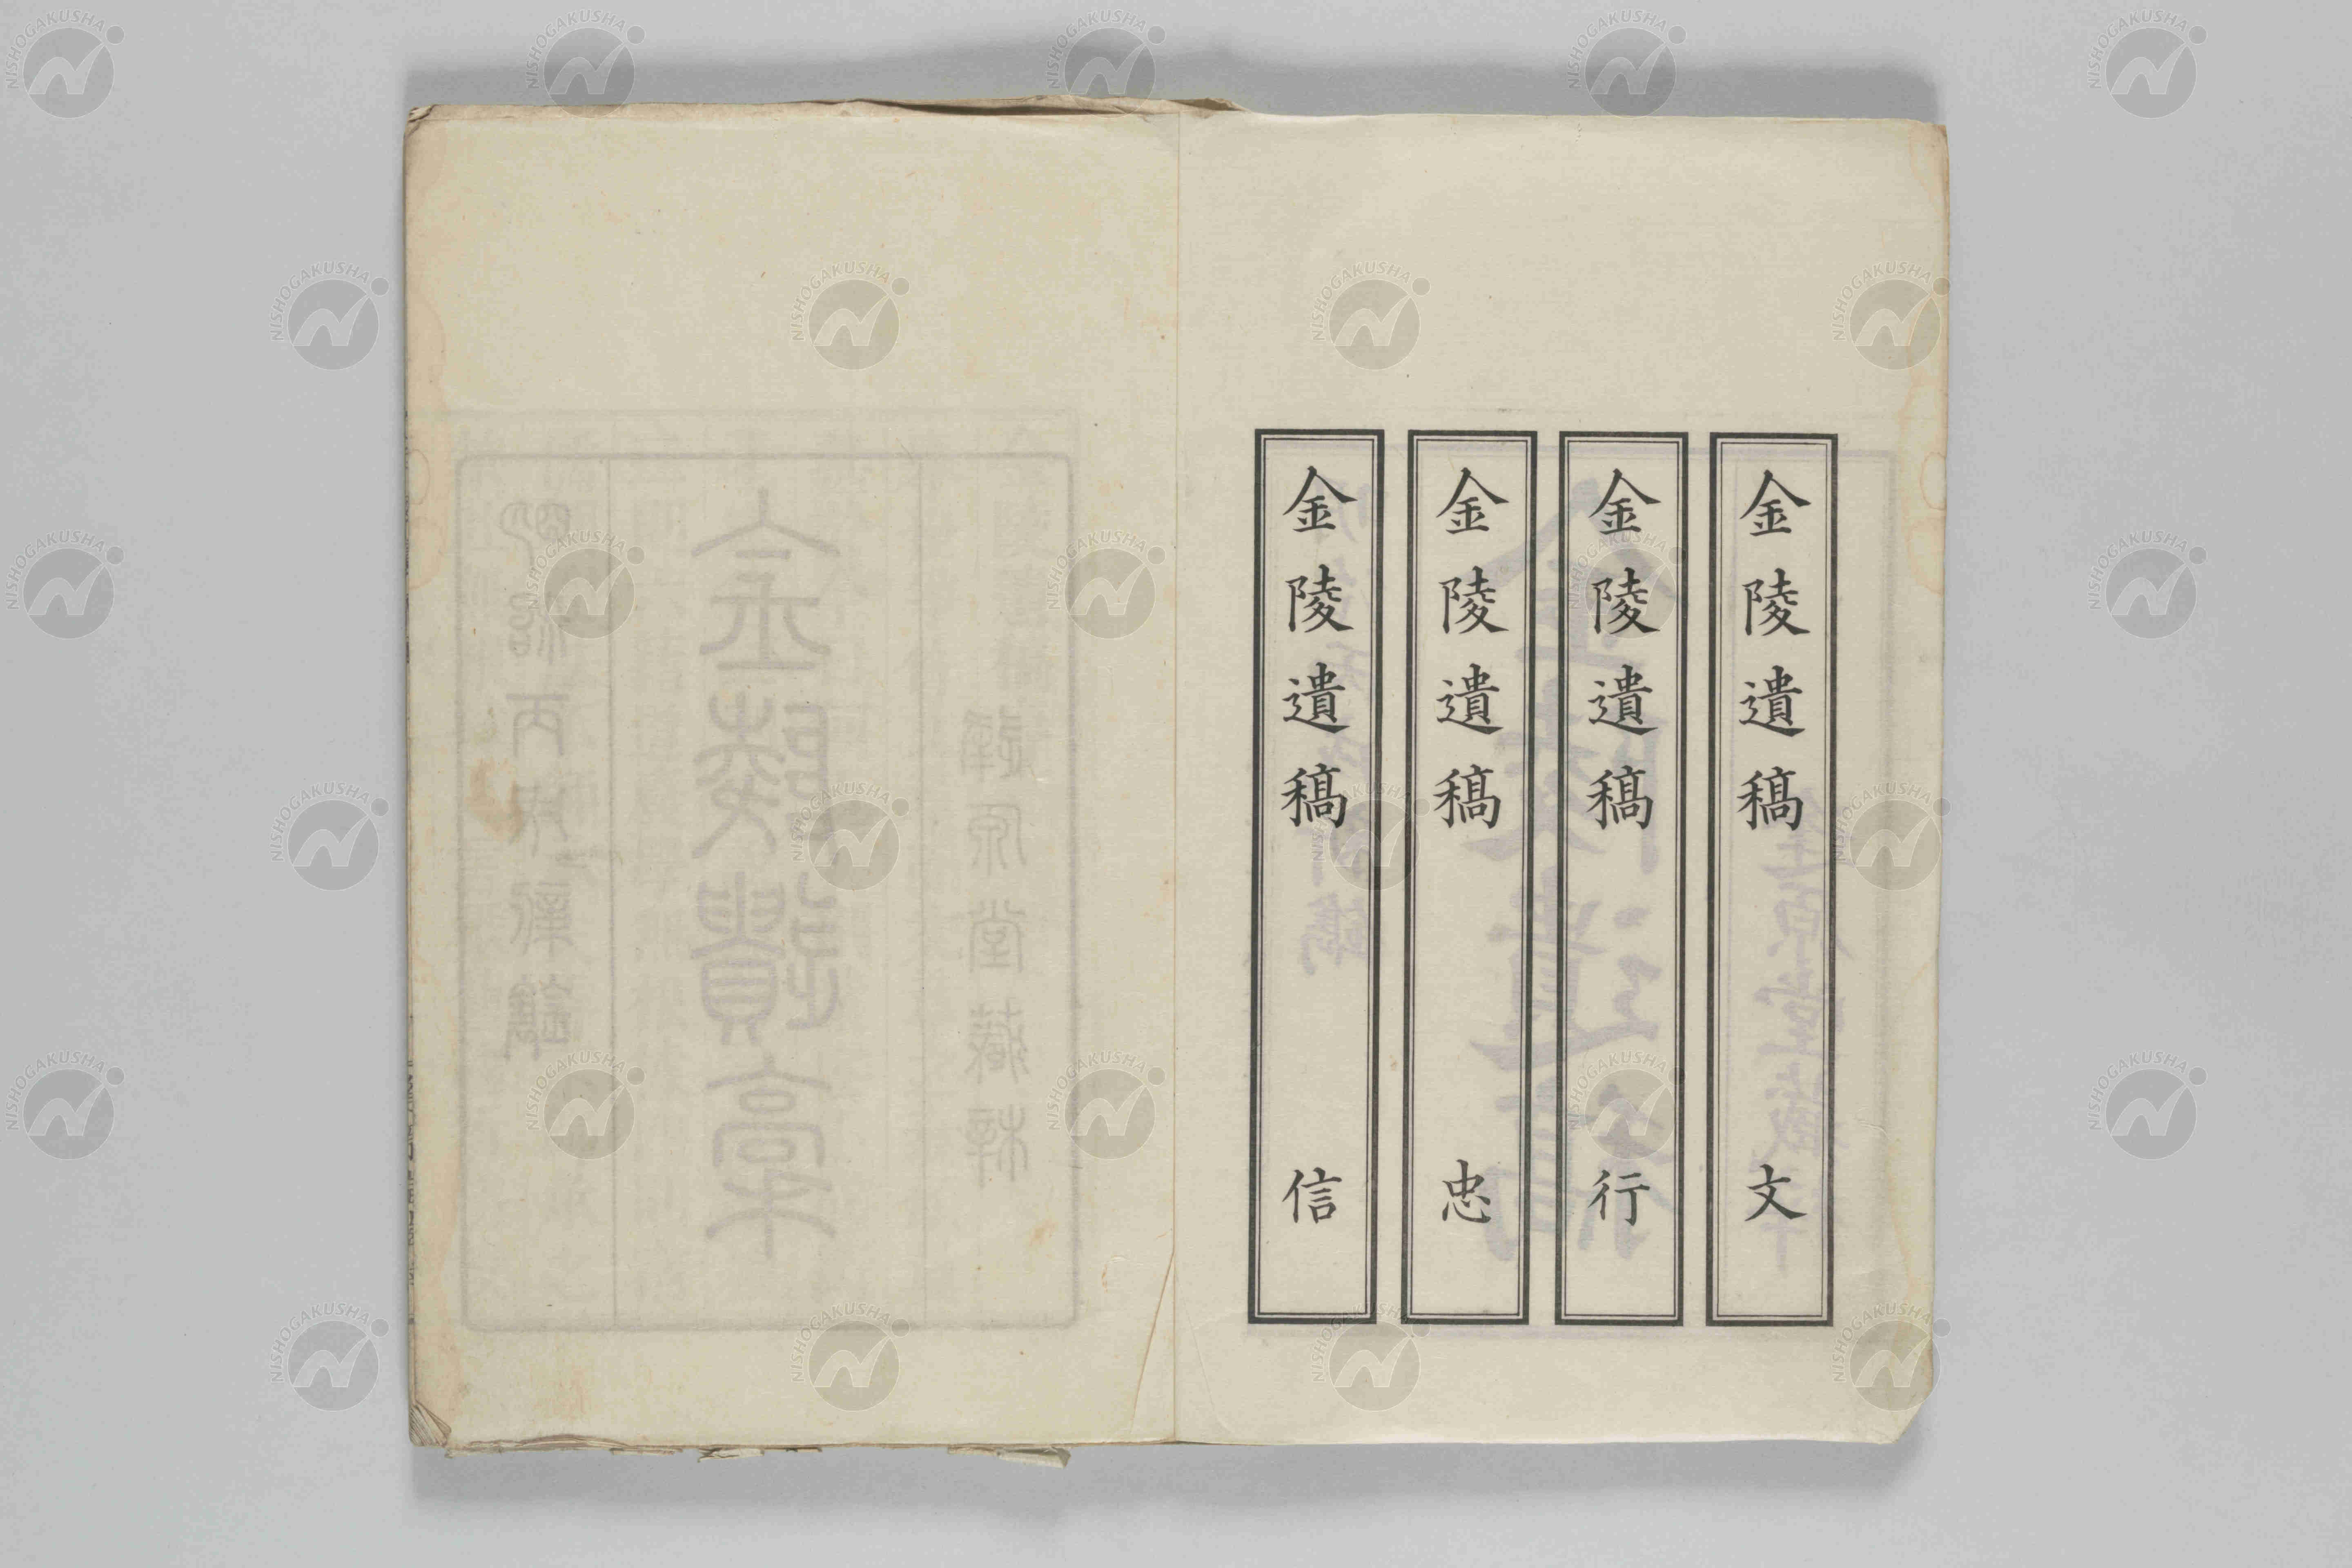 金陵遺稿 文
金陵遺稿 行
金陵遺稿 忠
金陵遺稿 信
NISHOGAKUSHA